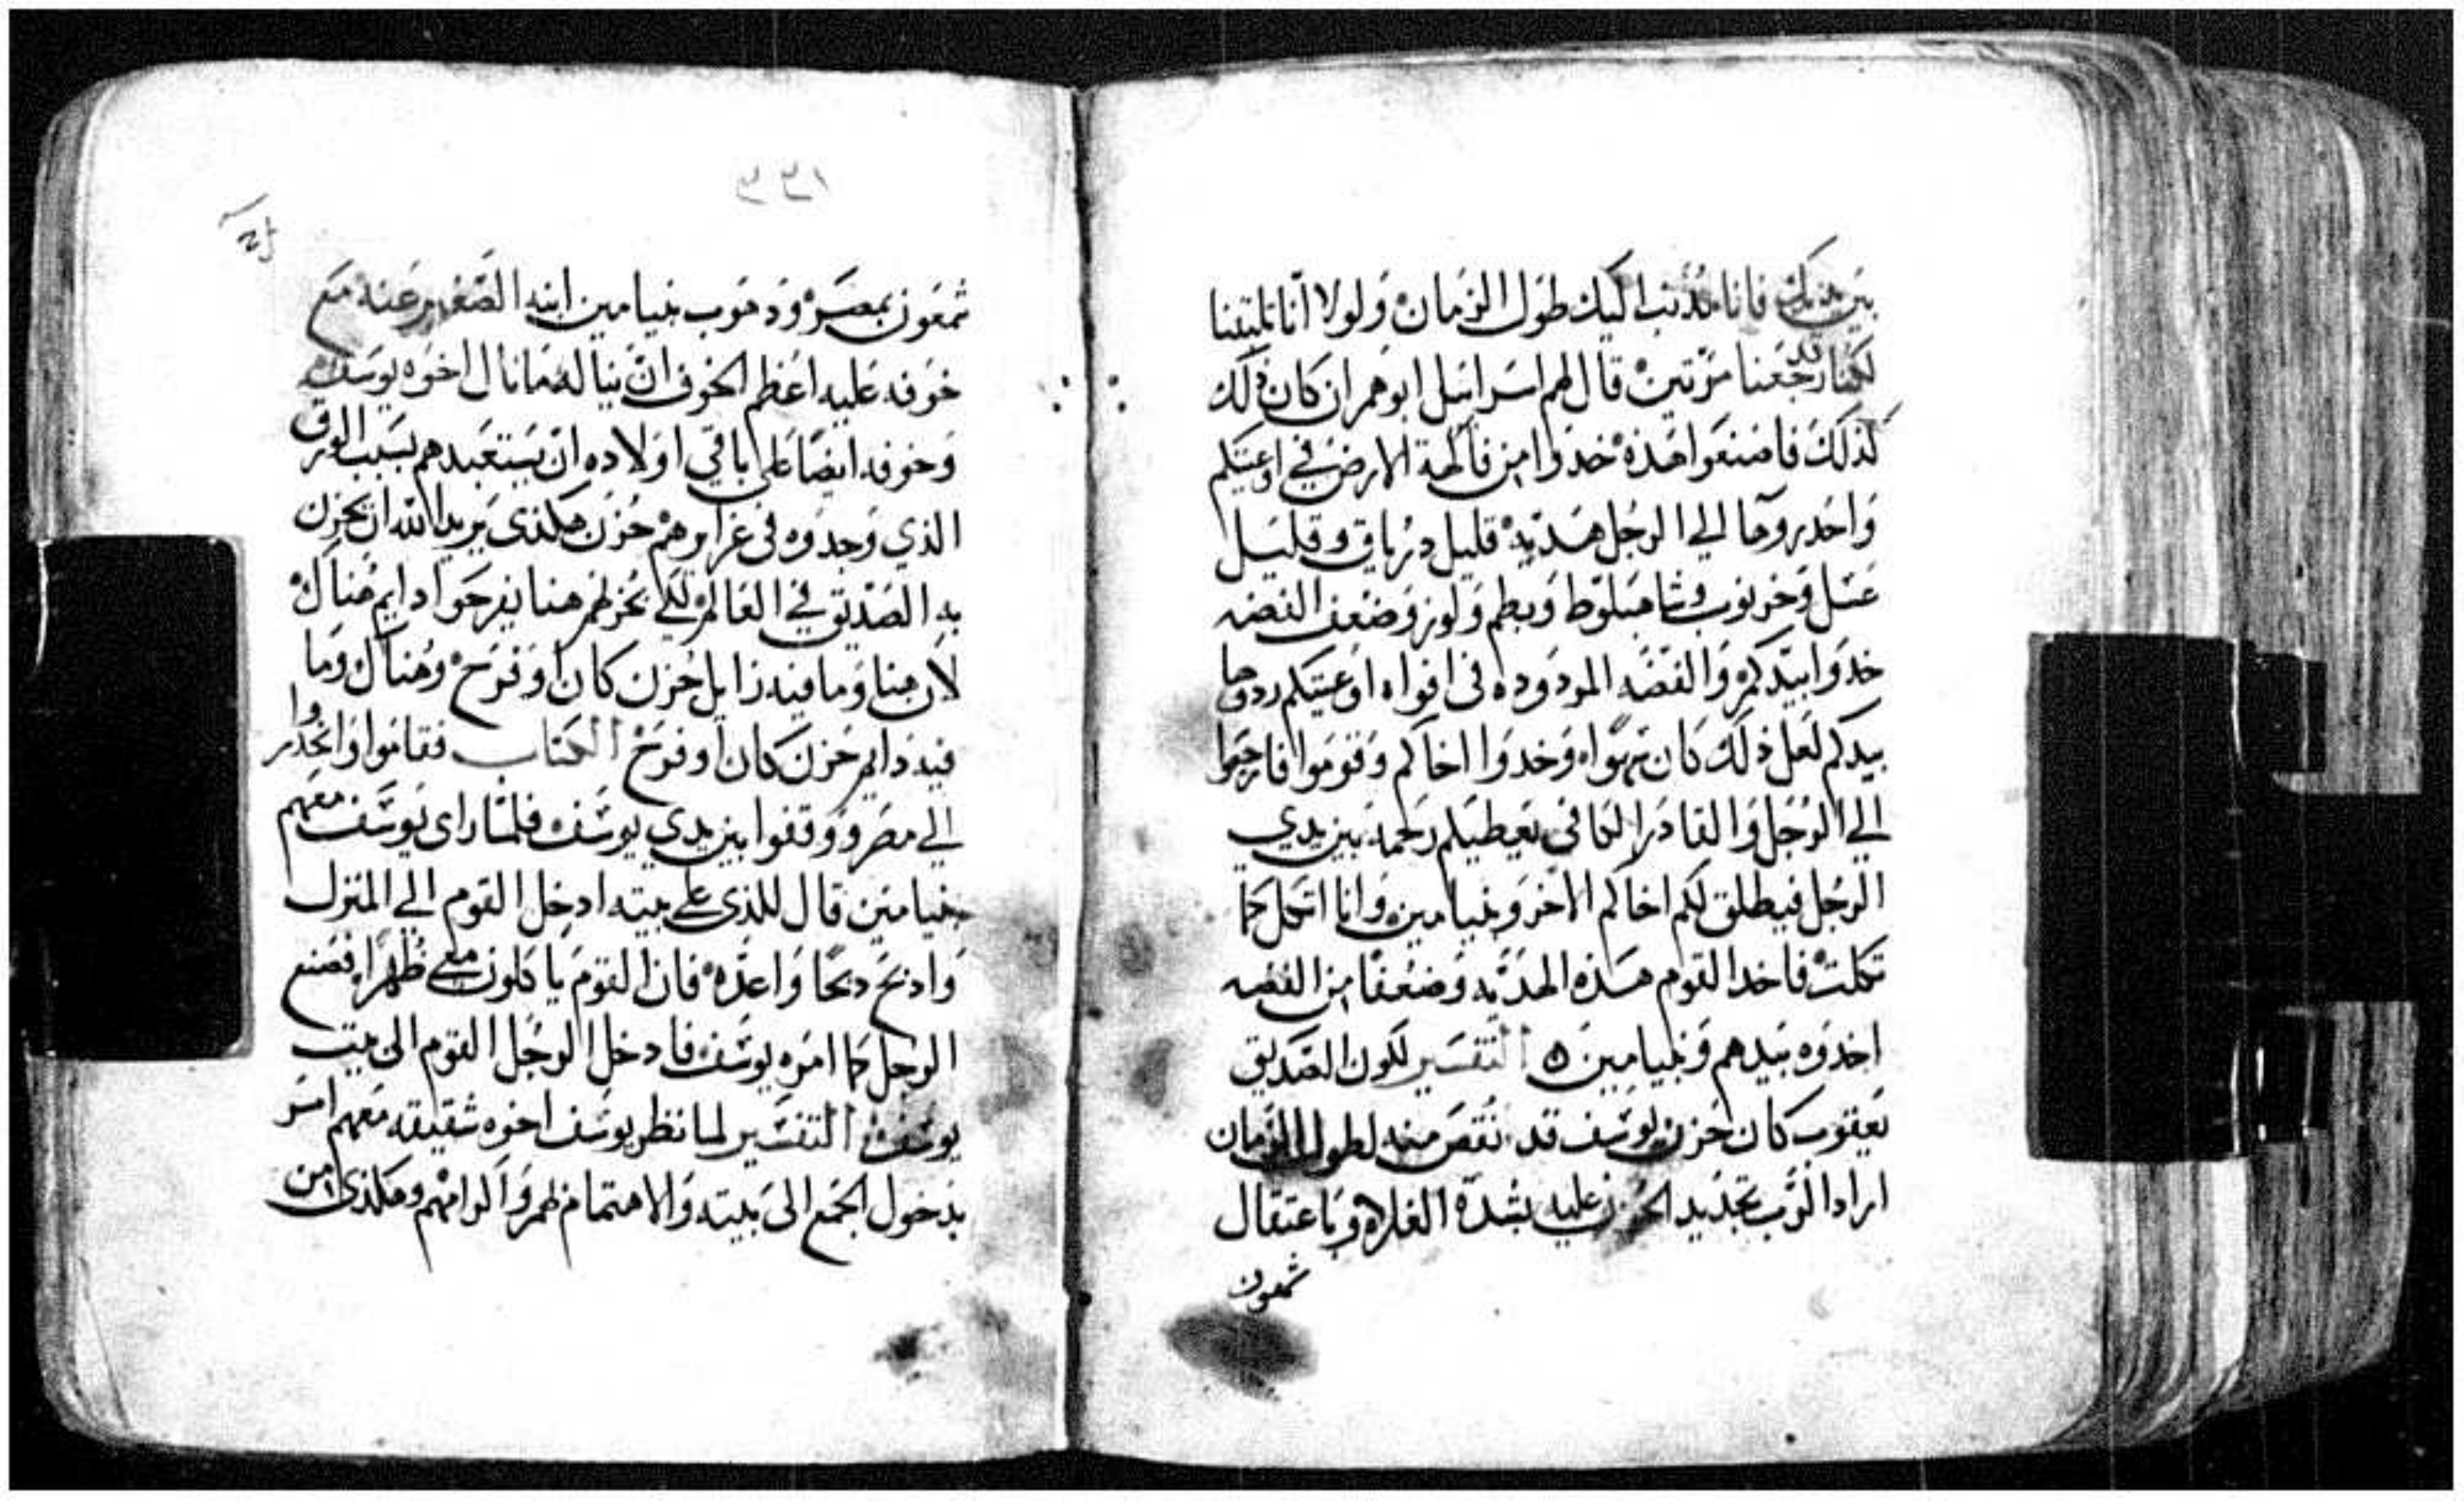 بين يديك فانا مذنب اليك طول الزمان ولولا انا تلبتنا
لكنا قد رجعنا مرتين قال لهم اسرائيل ابوهم ان كان ذلك
كذلك فاصنعوا هذه خدوا من فاكهة الارض في اوعيتكم
واحدروها الي الرجل هديه قليل درياق وقليل
عسل وخرنوب وشاهبلوط وبطم ولوز وضعف الفضه
خدوا بيدكم والفضه المردوده في افواه اوعيتكم ردوها
بيدكم لعل ذلك كان سهوا وخدوا اخاكم وقوموا فارجعوا
الي الرجل والقادر الكافي يعطيكم رحمه بين يدي
الرجل فيطلق لكم اخاكم الاخر وبنيامين وانا اتكل كما
تكلت فاخد القوم هذه الهديه وضعفا من الفضه
اخدوه بيدهم وبنيامين التفسير لكون الصديق
يعقوب كان حزن يوسف قد نقص منه لطول الزمان
اراد الرب تجديد الحزن عليه بشدة الغلاء وباعتقال
شمعون
٣٣١
شمعون بمصر ودهوب بنيامين ابنه الصغير عنه مع
خوفه عليه اعظم الخوف ان يناله ما نال اخوه يوسف
وخوفه ايضا على باقي اولاده ان يستعبدهم بسبب الورق
الذي وجدوه في غرايرهم حزن هكذى يريد الله ان يحزن
به الصديق في العالم لكي بحزنهم هنا يفرحوا دايم هناك
لان هنا وما فيه زايل حزن كان او فرح وهناك وما
فيه دايم حزن كان او فرح الكتاب فقاموا وانحدروا
الي مصر ووقفوا بين يدي يوسف فلما راى يوسف معهم
بنيامين قال للذى علي بيته ادخل القوم الي المنزل
وادبح دبحا واعده فان القوم ياكلون معي ظهرا فصنع
الرجل كما امره يوسف فادخل الرجل القوم الى بيت
يوسف التفسير لما نظر يوسف اخوه شقيقه معهم امر
بدخول الجمع الى بيته والاهتمام لهم واكرامهم وهكذى من